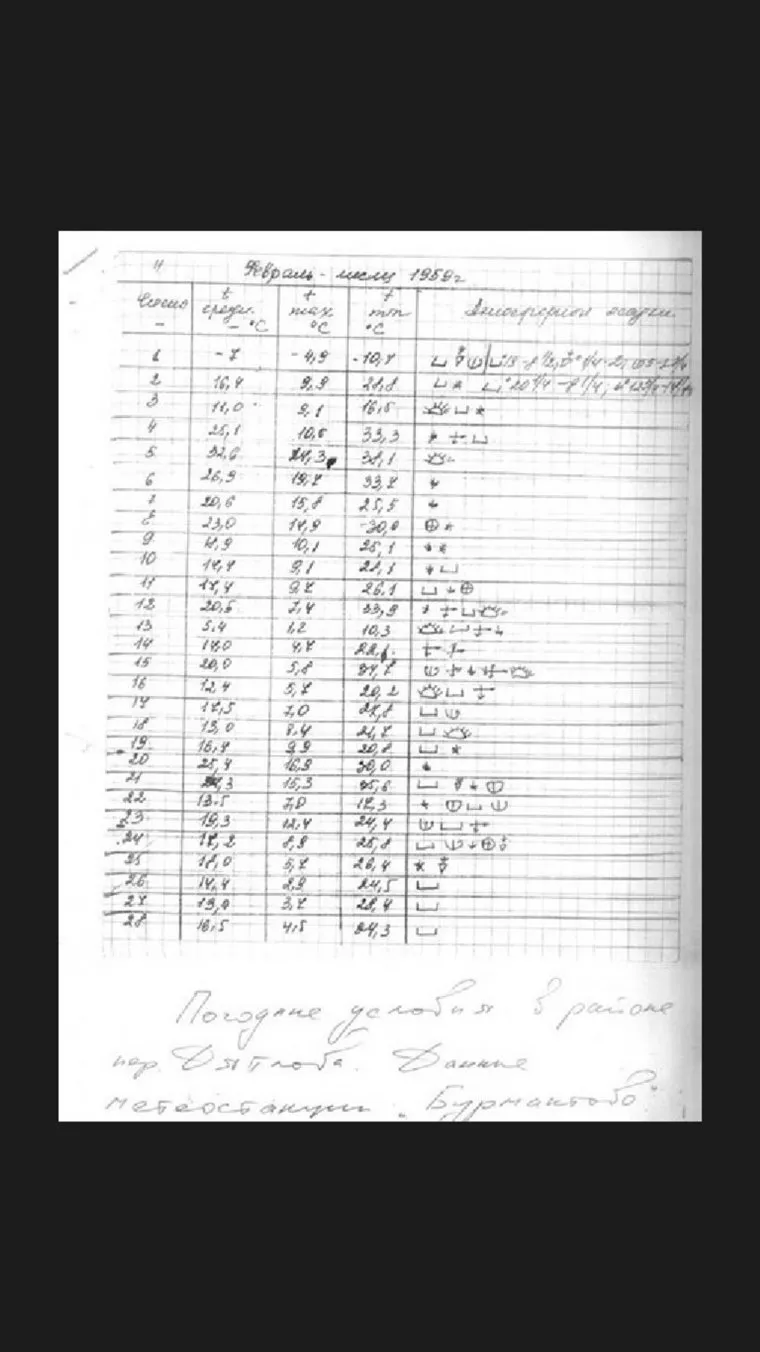 Февраль - месяц 1959г
Число t средн. - °C t max °C t min °C Атмосферные осадки.
1 -7 -4,9 -10,7
2 16,4 9,9 28,8
3 11,0 9,1 16,5
4 25,1 10,6 33,3
5 32,6 24,3 38,1
6 26,9 19,7 33,7
7 20,6 15,8 25,5
8 23,0 14,9 -30,0
9 10,1 25,1
10 14,4 9,1
11 17,4 9,7 26,1
12 20,5 7,4 33,9
13 5,4 1,2 10,3
14 14,0 4,7
15 20,0 5,8 31,7
16 12,4 5,7 20,2
17 17,5 7,0 27,8
18 13,0 8,4 21,7
19 16,7 9,9 20,8
20 25,7 16,9 30,0
21 15,3 35,6
22 13.5 7,0 17,3
23 19,3 12,4 24,4
24 17,2 8,9 25,8
25 18,0 5,7 26,4
26 14,4 2,9 24,5
27 13,9 3,7 28,4
28 16,5 4,5 24,3
Погодные условия в районе
пер. Дятлова. Данные
метеостанции „Бурмантово"